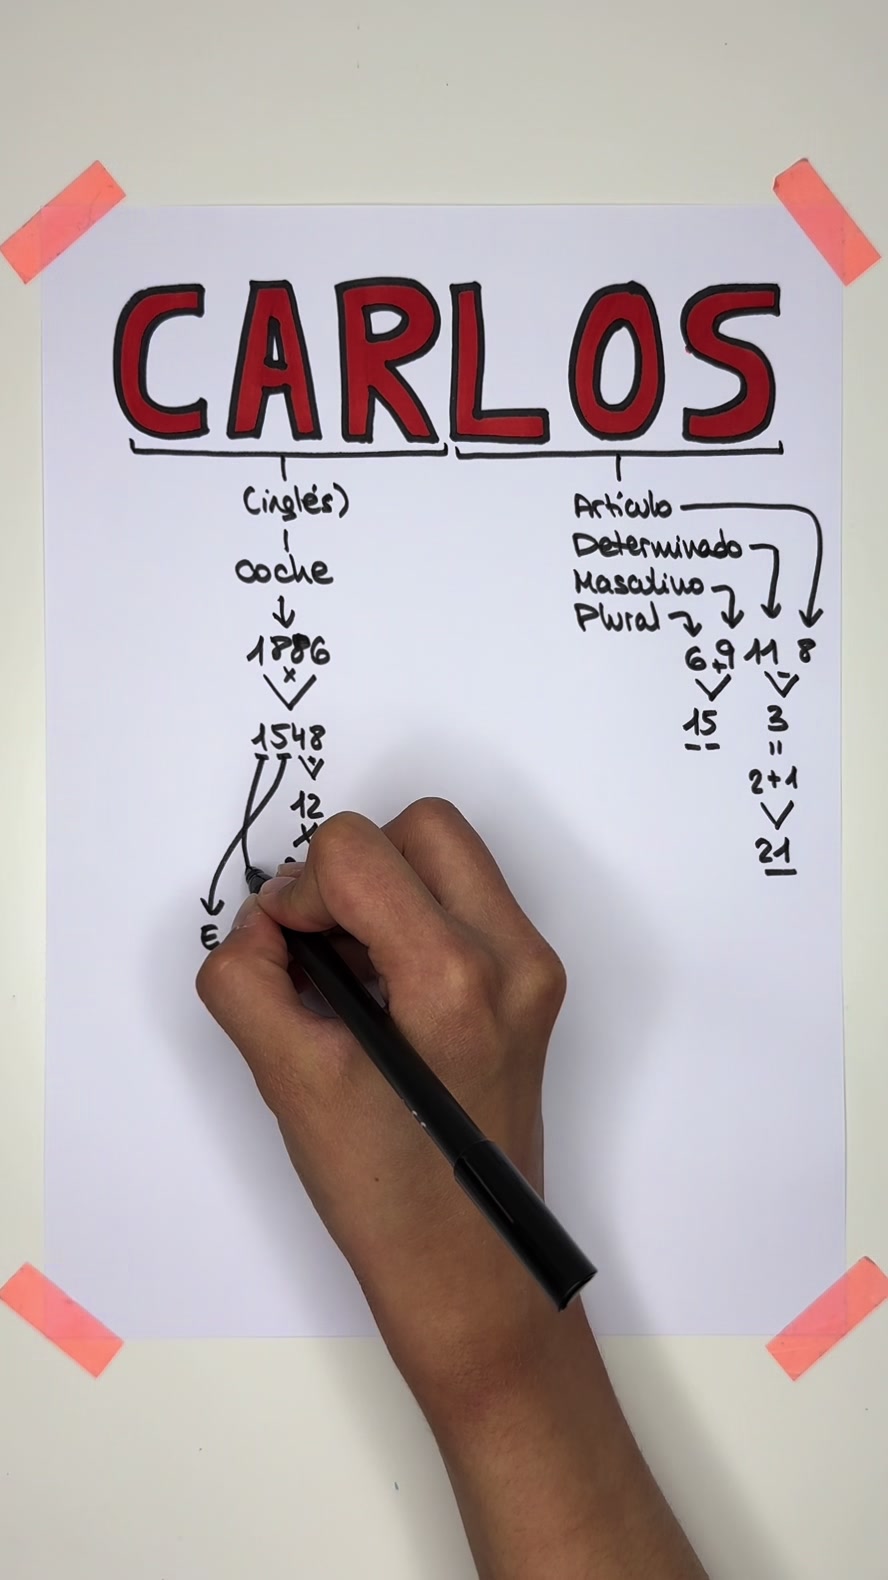 CARLOS
(inglés)
coche
1886
x
1548
12
x
E
Artículo
Determinado
Masculino
Plural
6+9 11-8
15 3
=
2+1
21